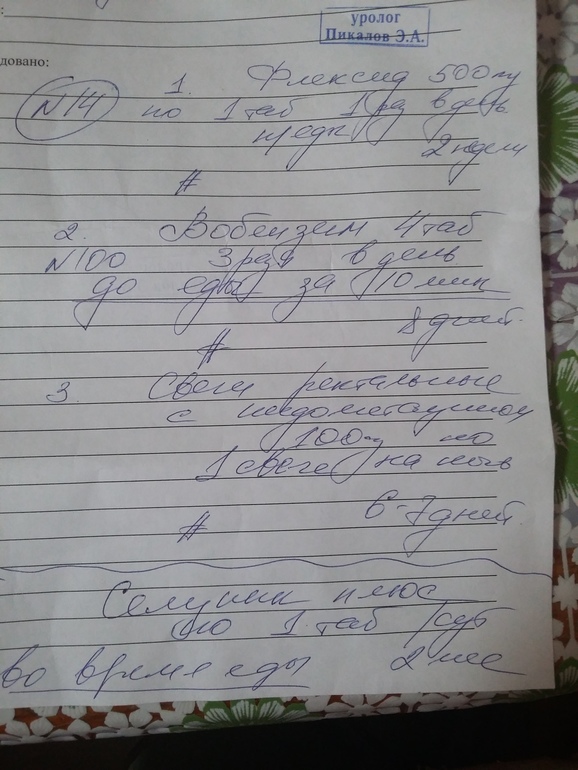 уролог
Пикалов Э.А.
довано:
1. Флексид 500 мг
N14 по 1 таб 1 раз в день
2 недели
#
2. Вобензим 4 таб
N100 3 раз в день
до еды за 10 мин
8 дней.
#
3. Свечи ректальные
с индометацином
100 мг по
1 свече на ночь
6-7 дней.
#
плюс
по 1 таб /сут
во время еды 2 мес